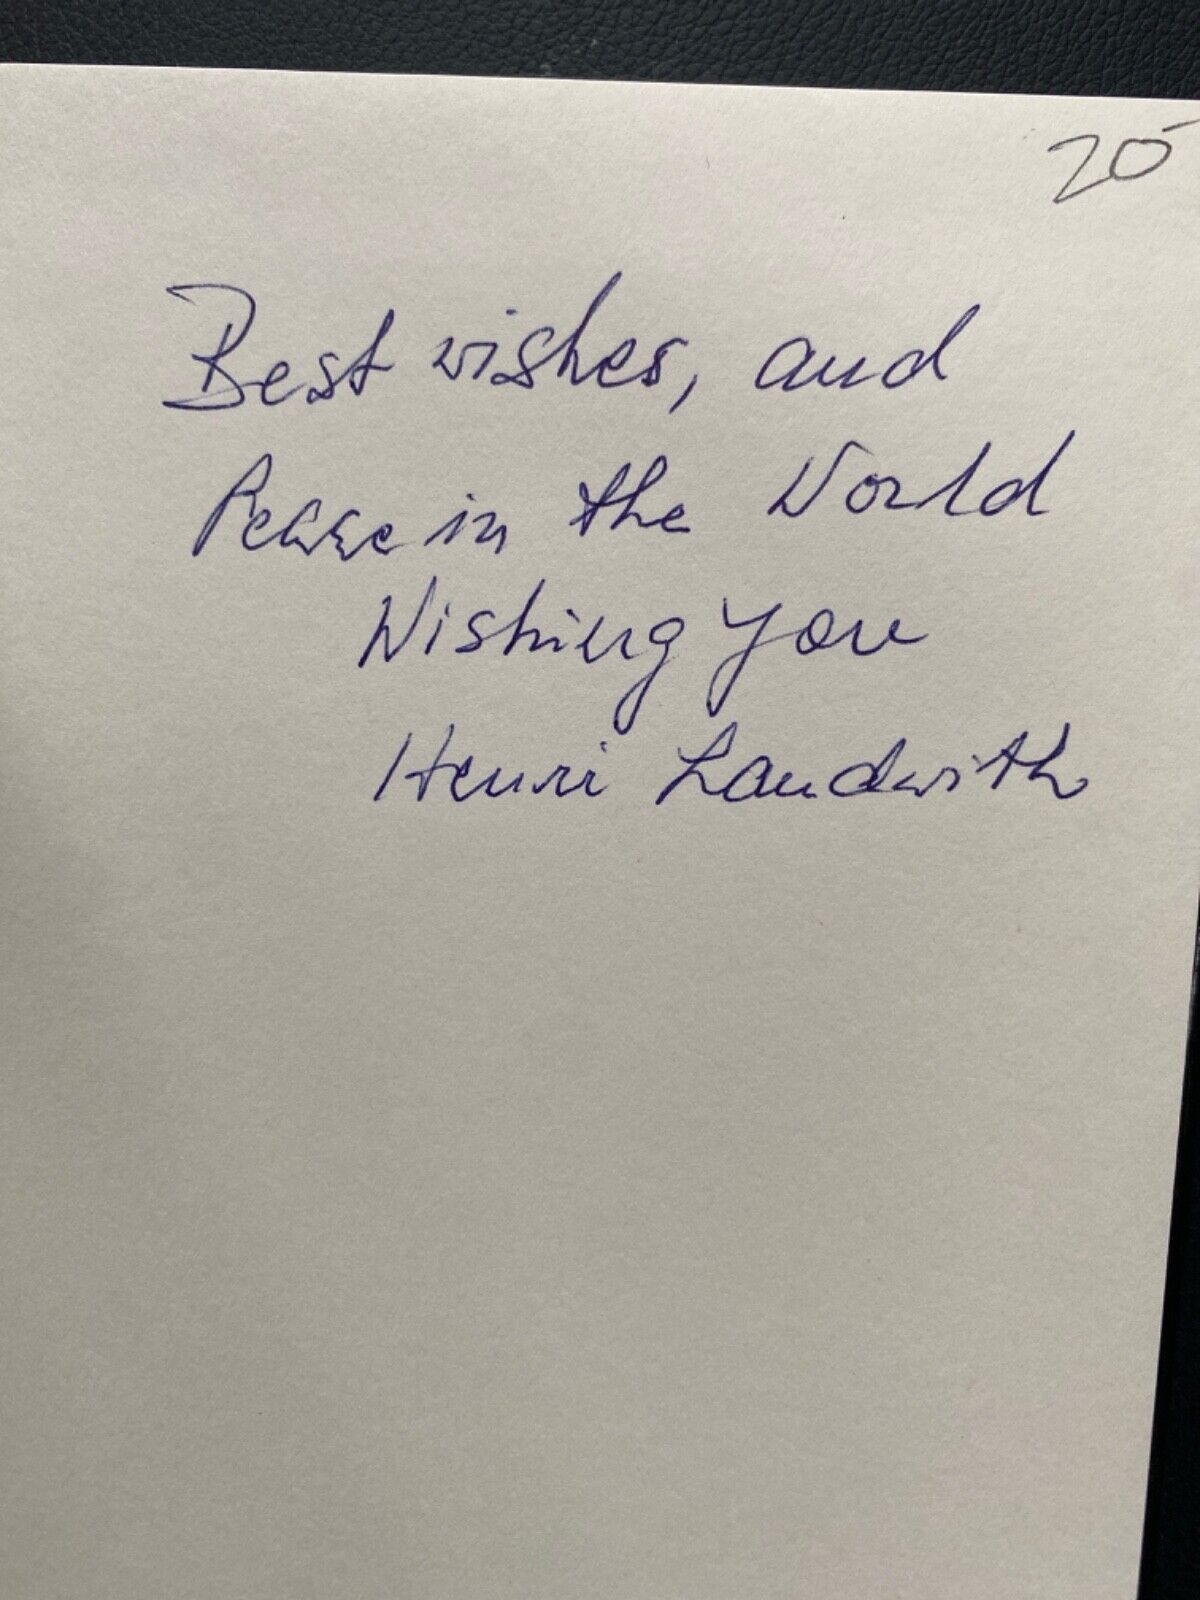 20-
Best wishes, and
Peace in the World
Wishing you
Henri Landwirth